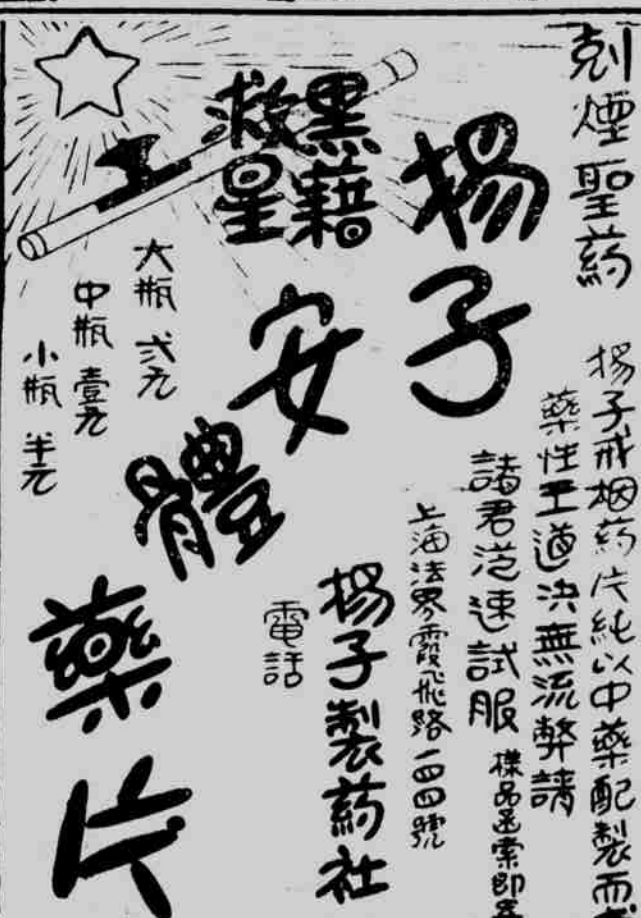 剋煙聖葯
揚子戒烟葯片純以中藥配製而
藥性王道決無流弊請
諸君從速試服 樣品函索即
上海法界霞飛路一四四號
揚子製葯社
電話
揚子安體藥片
黑籍
救星
大瓶 弍元
中瓶 壹元
小瓶 半元